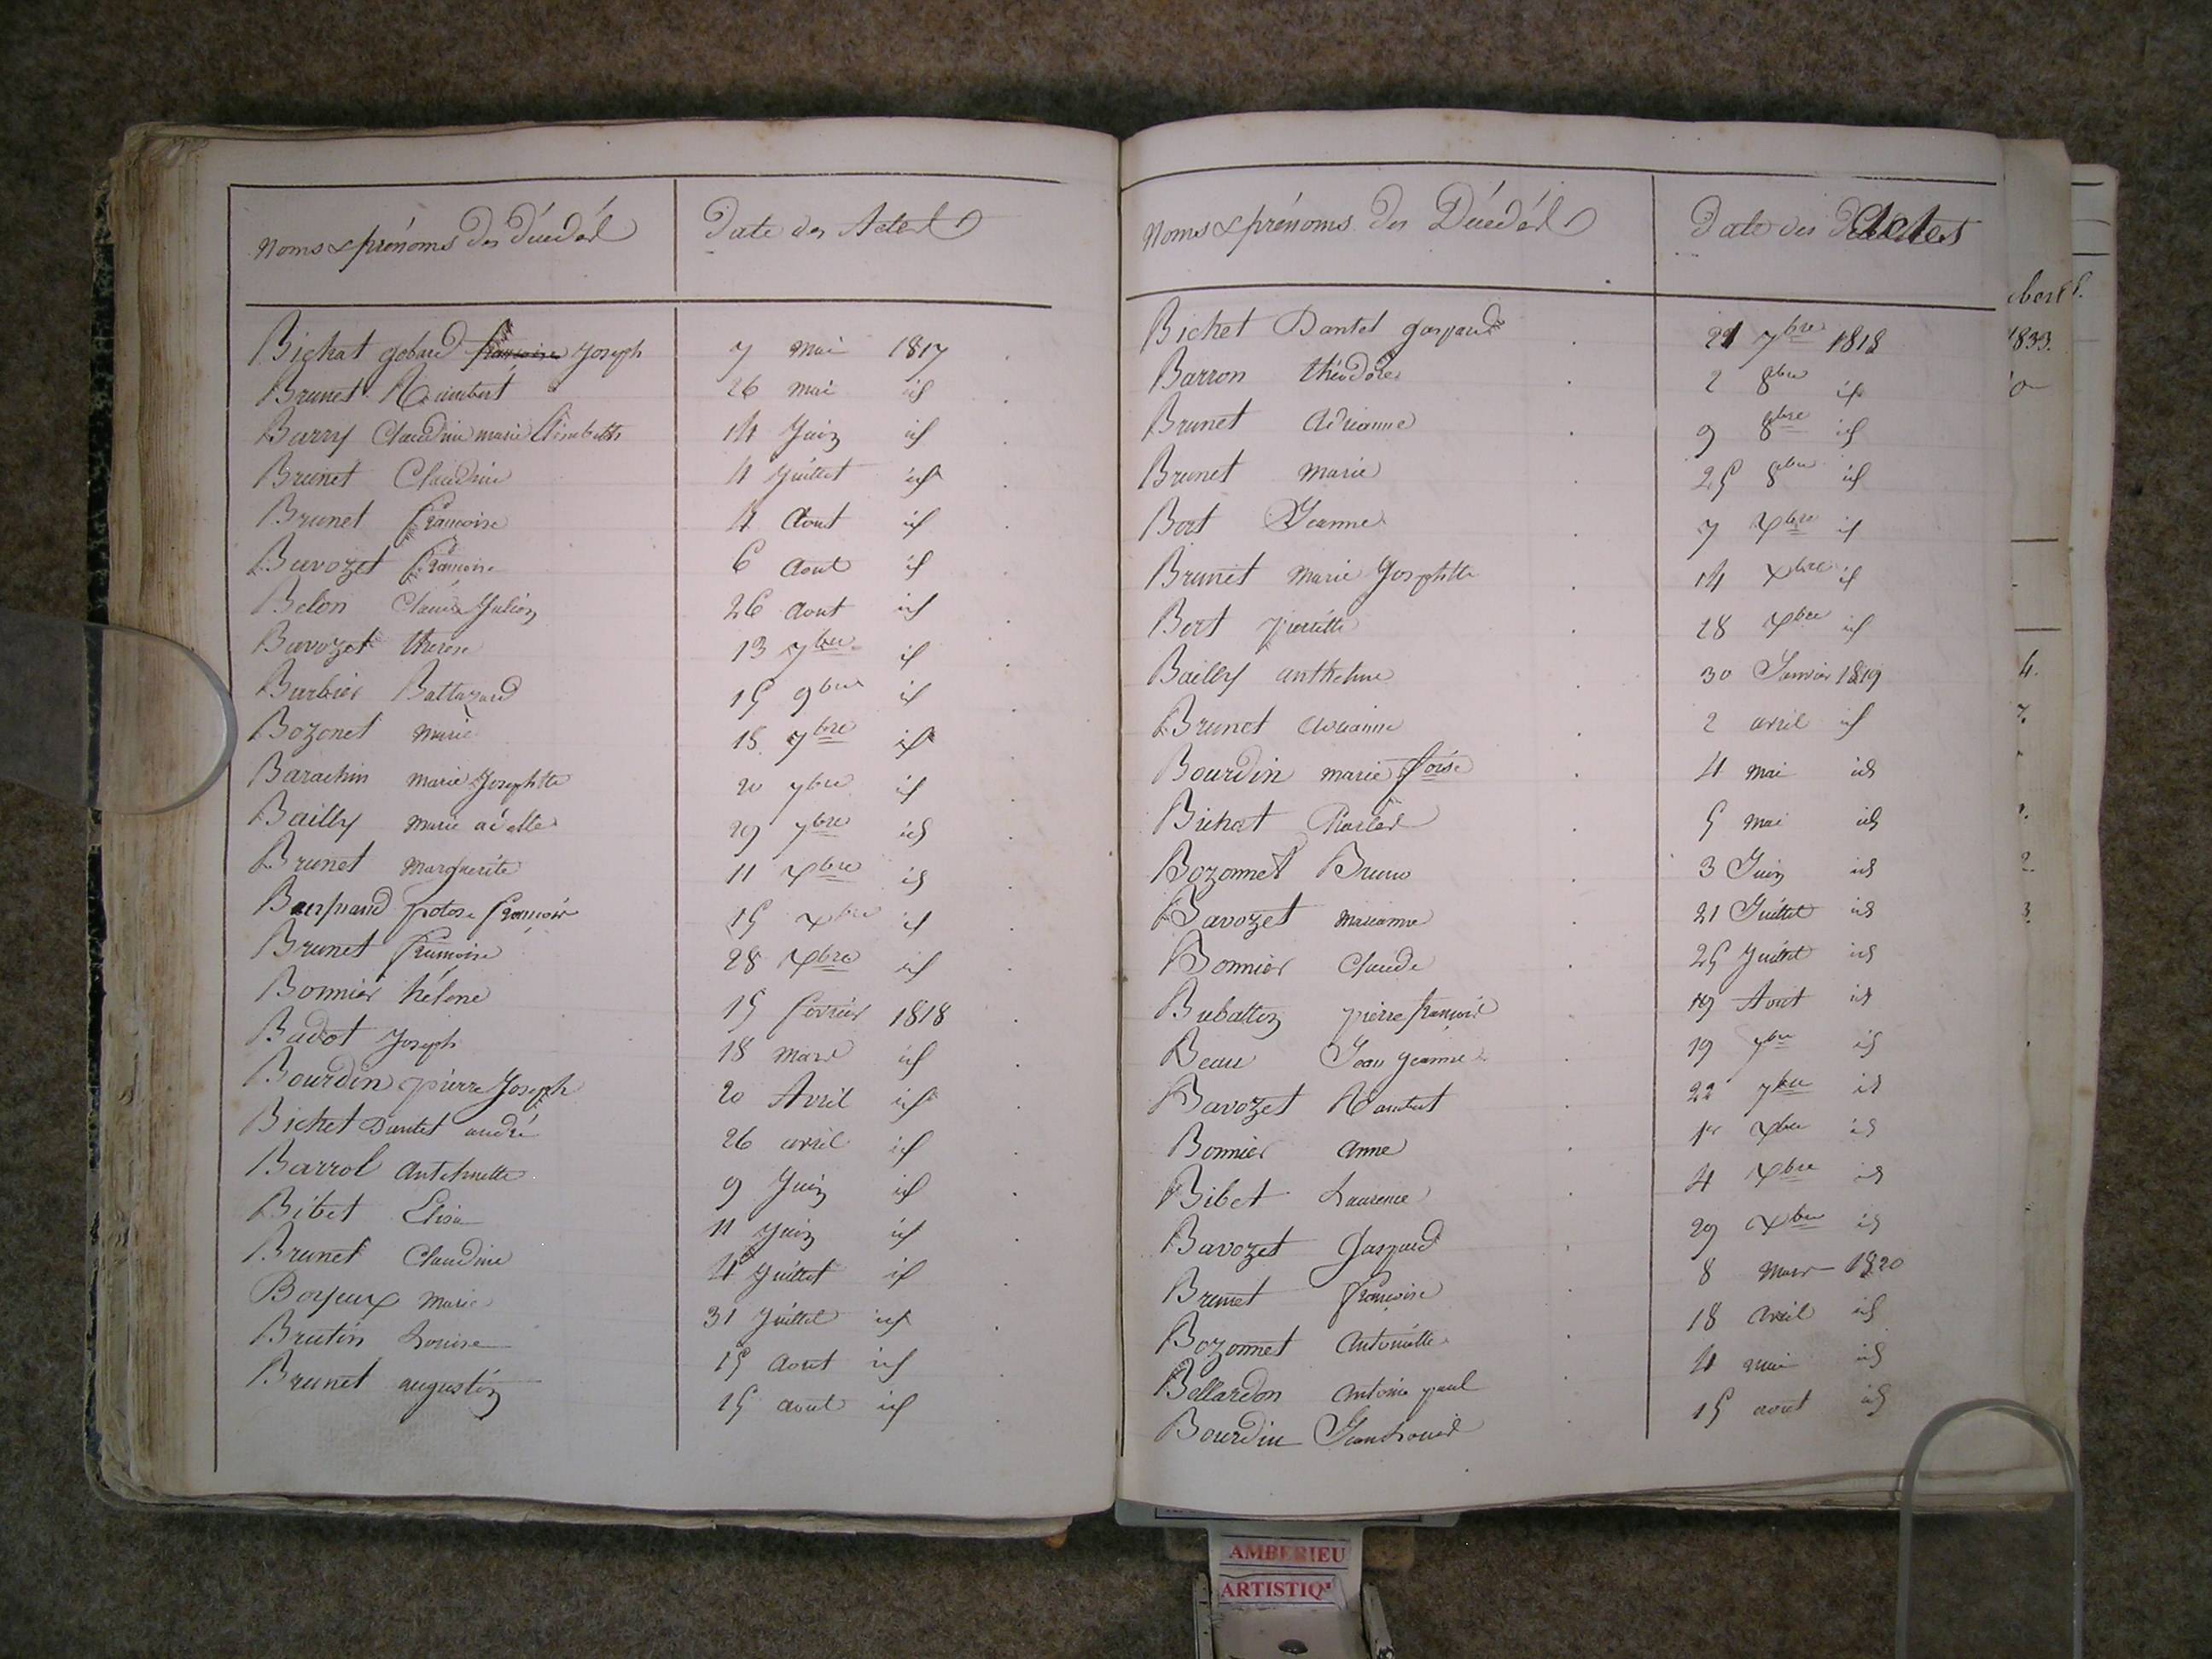 Noms & prénoms des Décédés
Date des Actes
Bichat gobard Joseph
7 Mai 1817
Brunet Rambert
26 Mai id
Barry Claudine marie Élisabeth
14 Juin id
Brunet Claudine
4 Juillet id
Brunet francoise
4 Aout id
Bavozet francoise
6 Aout id
Belon Claude Julien
26 Aout id
Bavozet therese
13 7bre id
Barbier Baltazard
15 9bre id
Bozonet Marie
18 7bre id
Barachin marie Josephtte
20 7bre id
Bailly Marie adelle
29 7bre id
Brunet Marguerite
11 Xbre id
francois
15 Xbre id
Brunet francoise
28 Xbre id
Bonnier hélene
15 fevrier 1818
Badot Joseph
18 Mars id
Bourdin pierre Joseph
20 Avril id
Bichet Dantel andré
26 avril id
Barrol
9 Juin id
Bibet Elisa
11 Juin id
Brunet Claudine
4 Juillet id
Boyeux Marie
31 Juillet id
Brutin Louise
15 Aout id
Brunet augustin
25 aout id
Noms & prénoms des Décédés
Date des Actes
Bichet Dantel gaspard
21 7bre 1818
Barron théodore
2 8bre id
Brunet Adrianne
9 8bre id
Brunet Marie
25 8bre id
Bort Jeanne
7 Xbre id
Brunet Marie Josephtte
14 Xbre id
Bort pierrette
28 Xbre id
Bailly anthelme
30 Janvier 1819
Brunet adrianne
2 avril id
Bourdin marie foise
4 mai id
Bichat
5 mai id
Bozonnet Bruno
3 Juin id
Bavozet marianne
21 Juillet id
Bonnier Claude
25 Juillet id
Bubatton pierre françois
19 Aout id
Beau Jean
19 7bre id
Bavozet Rambert
22 7bre id
Bonnier anne
1er Xbre id
Bibet Laurence
4 Xbre id
Bavozet Gaspard
29 Xbre id
Brunet francoise
8 Mars 1820
Bozonnet Antoinette
18 avril id
Bellardon antoine paul
4 mai id
Bourdin Jean Louis
15 aout id
1833.
AMBERIEU
ARTISTIQ